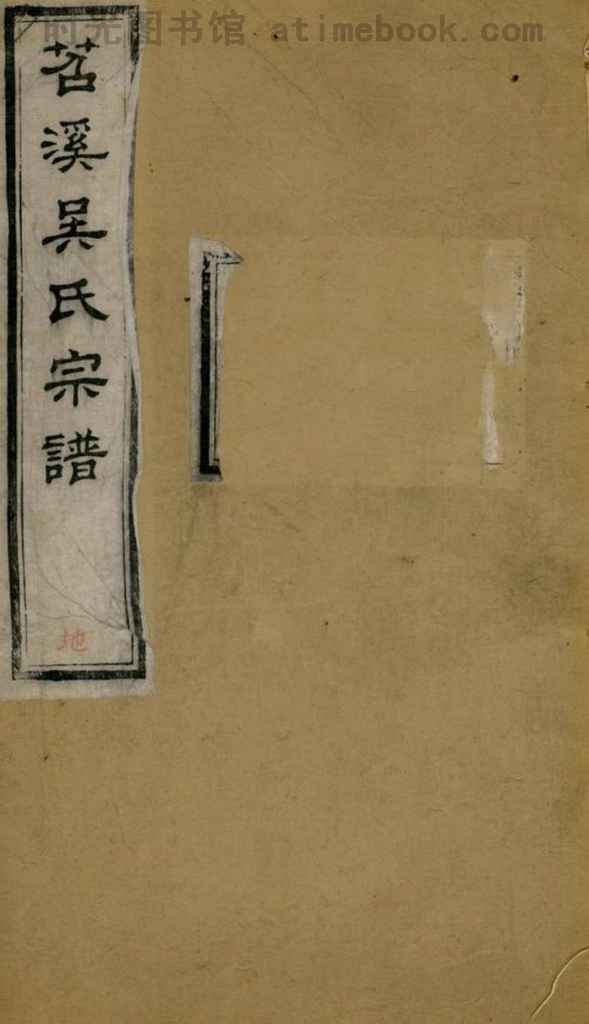 时光图书馆 atimebook.com
苕溪吴氏宗譜
地